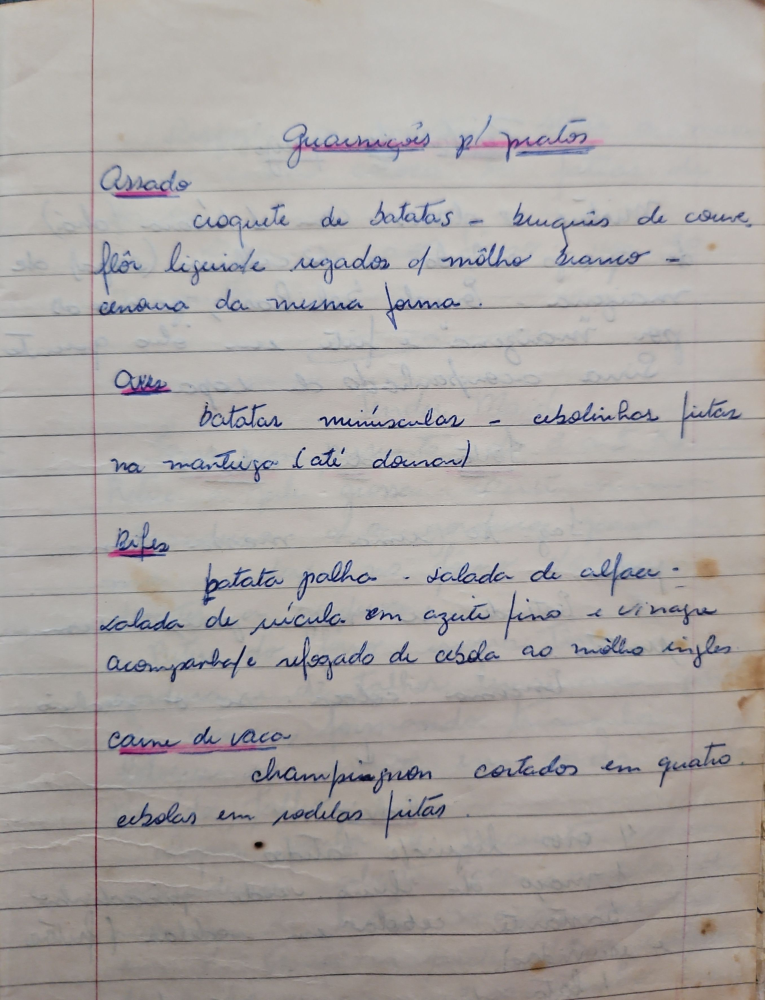 Guarnições p/ pratos
Assado
croquete de batatas - buquês de couve,
flôr ligeira/e regados c/ môlho branco -
cenoura da mesma forma.
Aves
batatas minúsculas - cebolinhas fritas
na manteiga (até dourar)
Bifes
batata palha - salada de alface -
salada de rúcula em azeite fino e vinagre
acompanha/e refogado de cebola ao môlho ingles
Carne de vaca
champignon cortados em quatro.
cebolas em rodelas fritas.